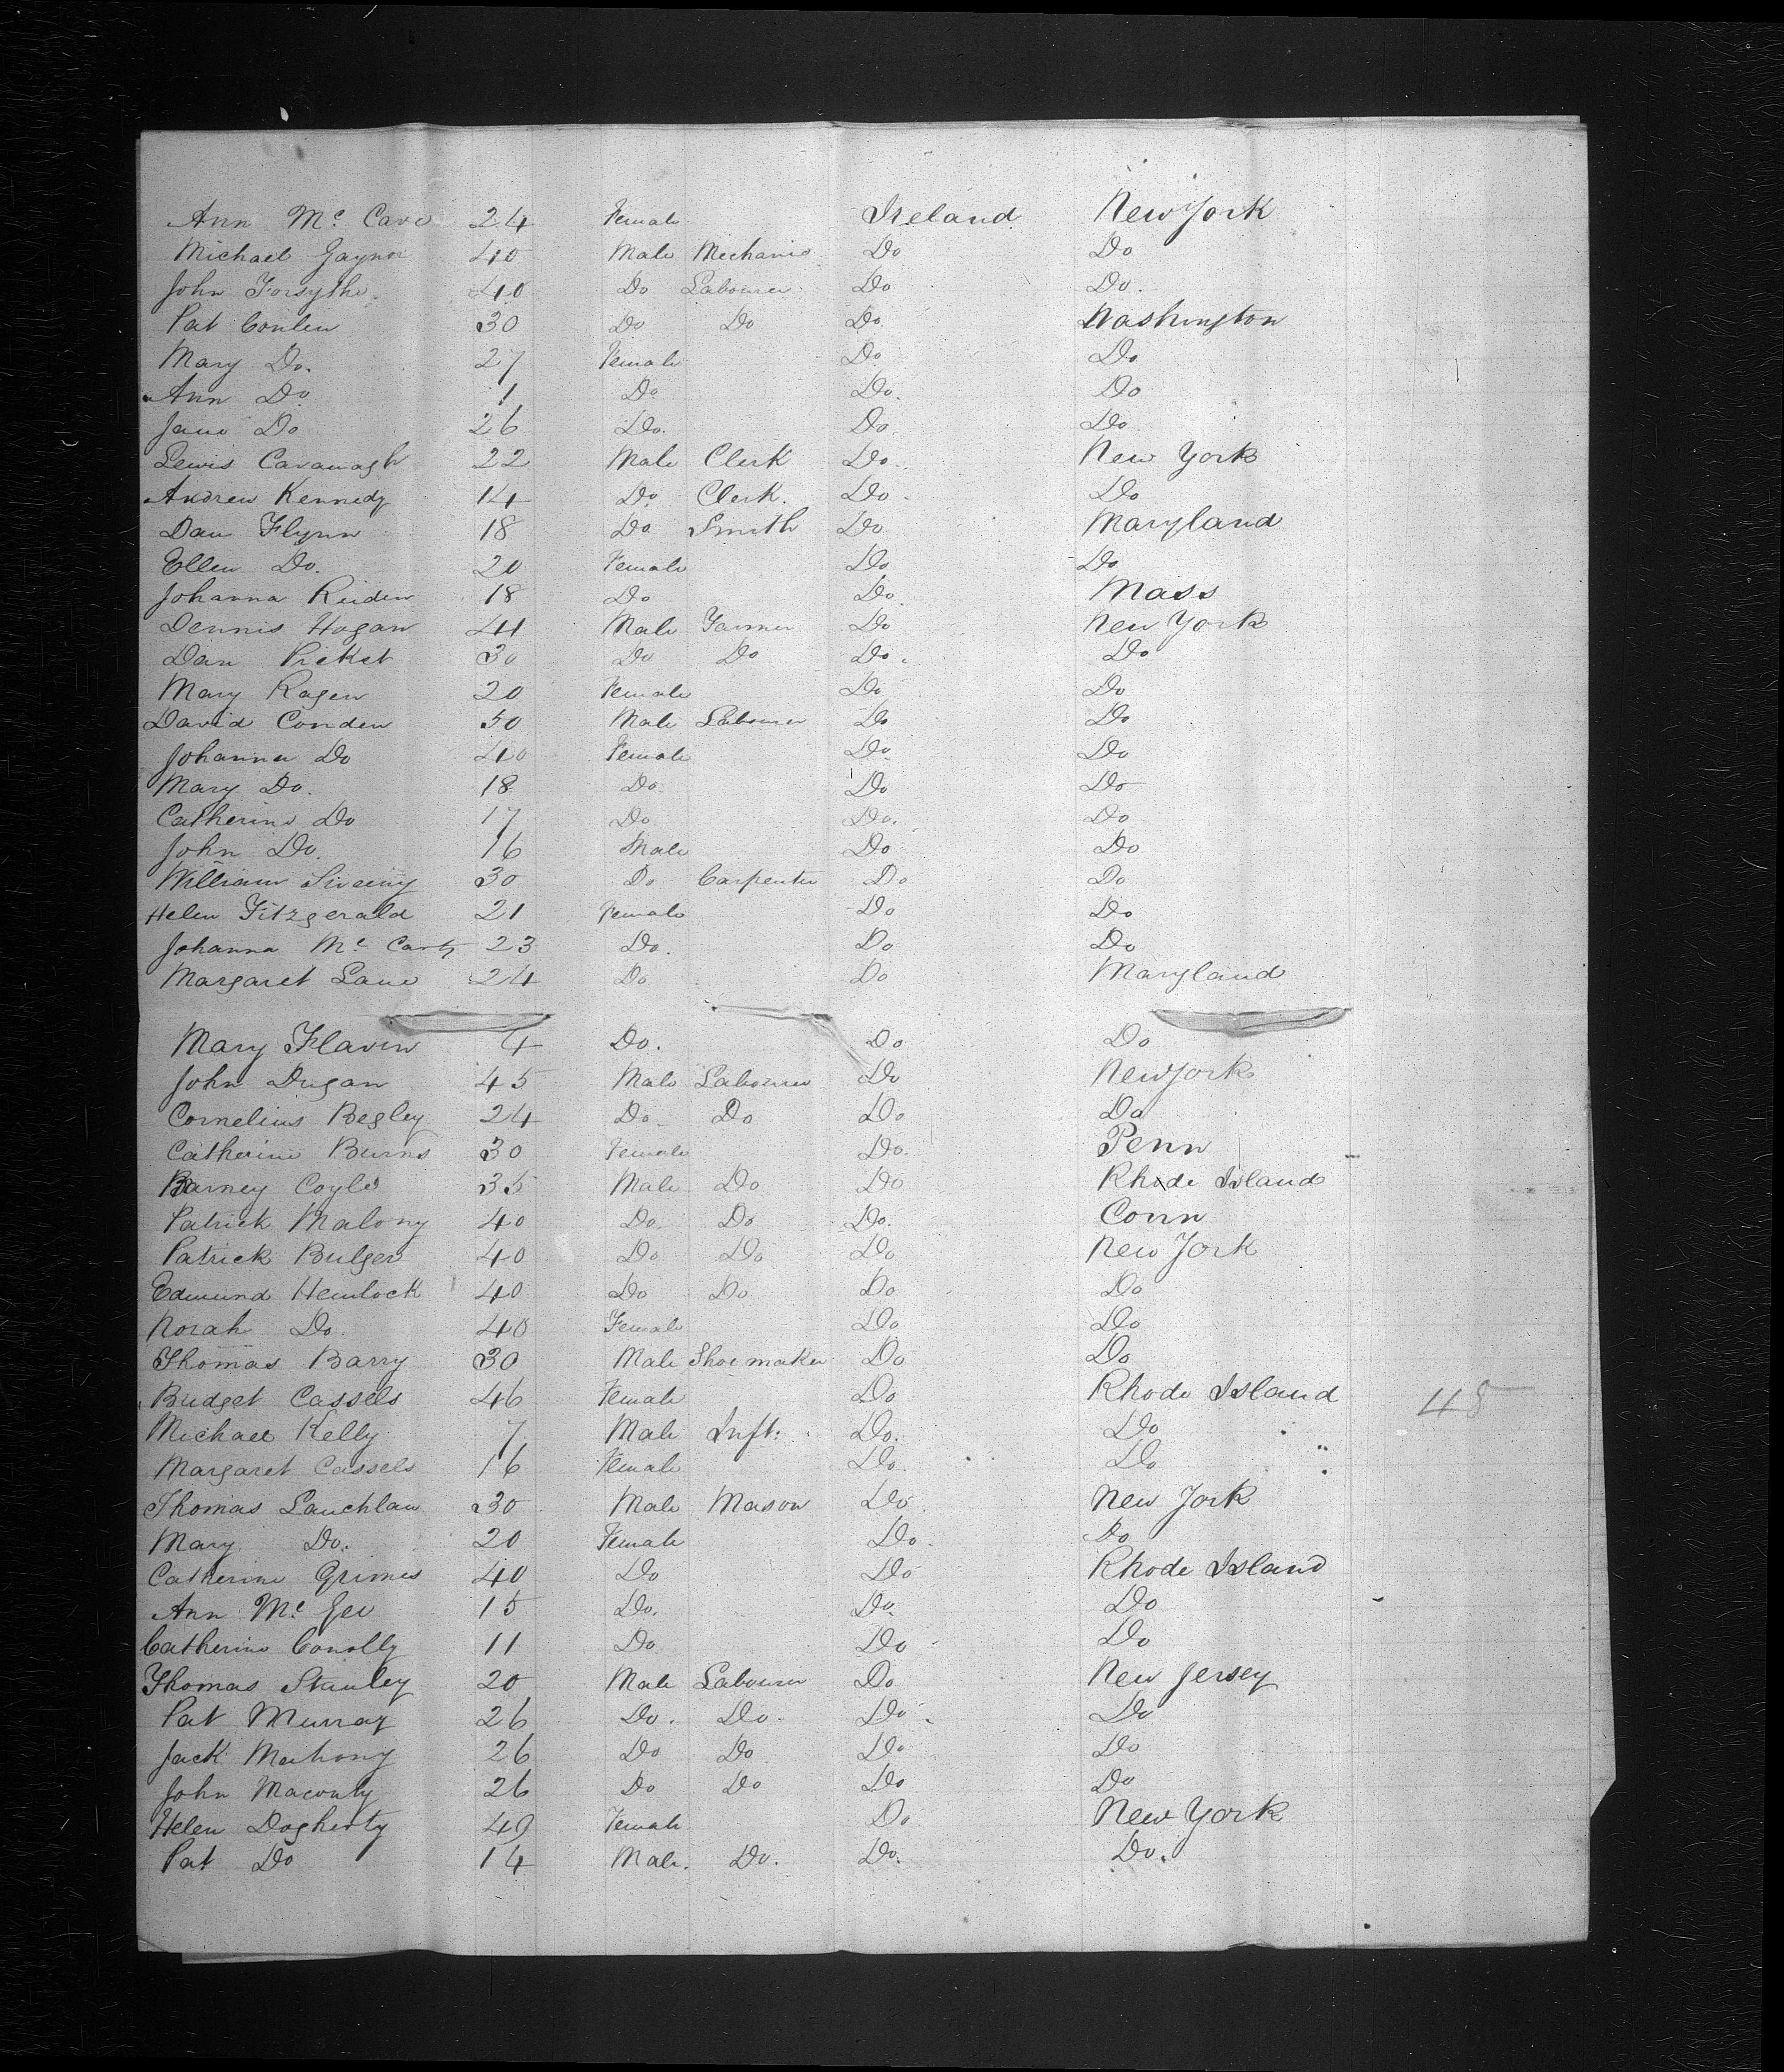 Ann Mc Cave 24 Female Ireland New York
Michael Gaynor 40 Male Mechanic Do Do
John Forsythe 40 Do Labourer Do Do.
Pat Conlen 30 Do Do Do Washington
Mary Do. 27 Female Do Do
Ann Do 1 Do Do. Do
Jane Do 26 Do. Do Do
Lewis Cavanagh 22 Male Clerk Do. New York
Andrew Kennedy 14 Do Clerk. Do Do
Dan Flynn 18 Do Smith Do Maryland
Ellen Do. 20 Female Do Do
Johanna 18 Do Do Mass
Dennis Hogan 41 Male Farmer Do New York
Dan Picket 30 Do Do Do. Do
Mary Ragen 20 Female Do Do
David Conden 50 Male Labourer Do Do
Johanna Do 40 Female Do Do
Mary Do. 18 Do. Do Do
Catherine Do 17 Do Do. Do
John Do. 16 Male Do Do
William 30 Do Carpenter Do Do
Helen Fitzgerald 21 Female Do Do
Johanna Mc Carty 23 Do. Do Do
Margaret Lane 24 Do Do Maryland
Mary Flavin 4 Do. Do Do
John Dugan 45 Male Labourer Do New York
Cornelius Begley 24 Do. Do Do Do
Catherine Burns 30 Female Do. Penn
Barney Coyle 35 Male Do Do Rhode Island
Patrick Malony 40 Do. Do Do. Conn
Patrick Bulger 40 Do Do Do New York
Edmund Hemlock 40 Do Do Do Do
Norah Do. 40 Female Do Do
Thomas Barry 30 Male Shoemaker Do Do
Bridget Cassels 46 Female Do Rhode Island 48
Michael Kelly 7 Male Inft. Do. Do
Margaret Cassels 16 Female Do. Do
Thomas Lauchlan 30 Male Mason Do New York
Mary Do. 20 Female Do. Do
Catherine Grimes 40 Do Do Rhode Island
Ann Mc Gee 15 Do. Do. Do
Catherine Conolly 11 Do Do Do
Thomas Stanley 20 Male Labourer Do New Jersey
Pat Murray 26 Do. Do. Do. Do
Jack Mahony 26 Do Do Do Do
John 26 Do Do Do Do
Helen Dogherty 40 Female Do New York
Pat Do 14 Male. Do. Do. Do.